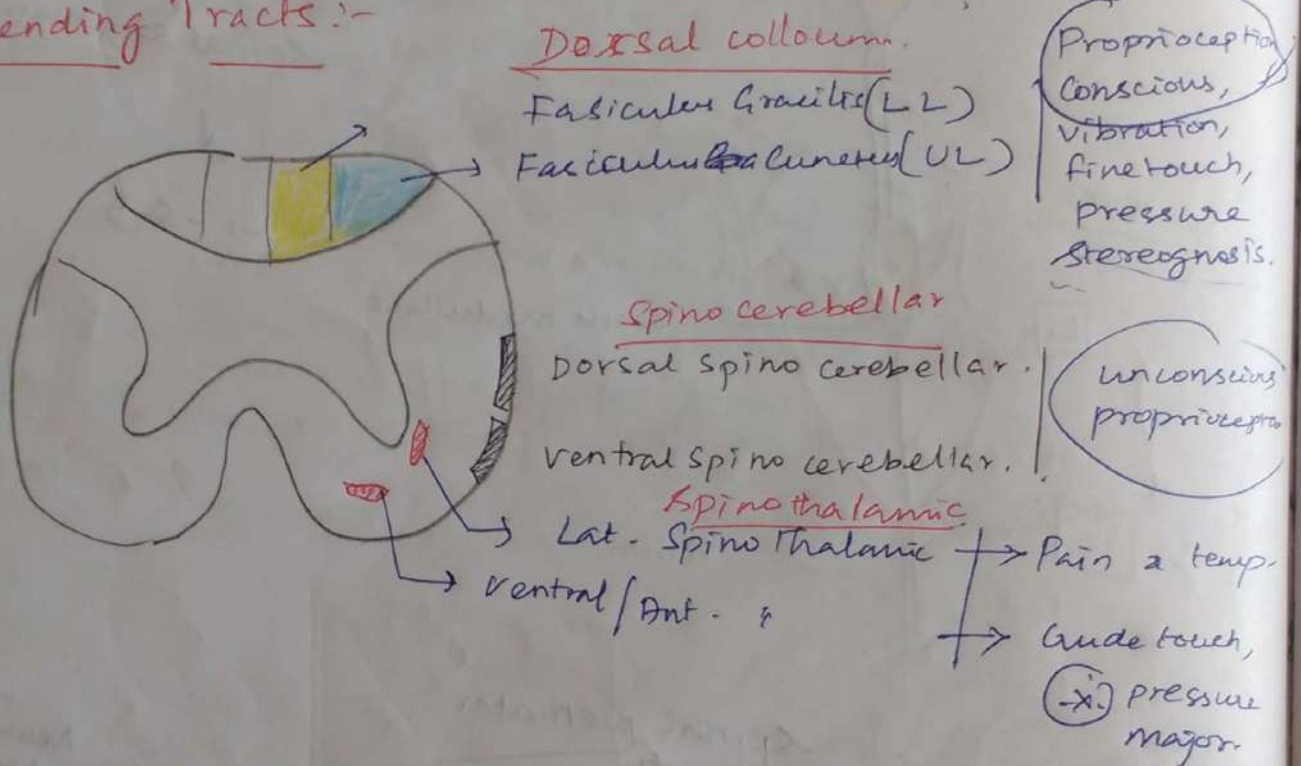 ending Tracts:-
Dorsal colloum.
Fasiculus Gracilis(LL)
Fasciculus Cuneteus(UL)
Proprioception
Conscious,
vibration,
fine touch,
pressure
stereognosis.
Spino cerebellar
Dorsal Spino cerebellar.
ventral Spino cerebellar.
unconscious
proprioceptio
Spinothalamic
Lat. Spino Thalamic
Pain & temp.
ventral/Ant. "
Crude touch,
pressure
major.